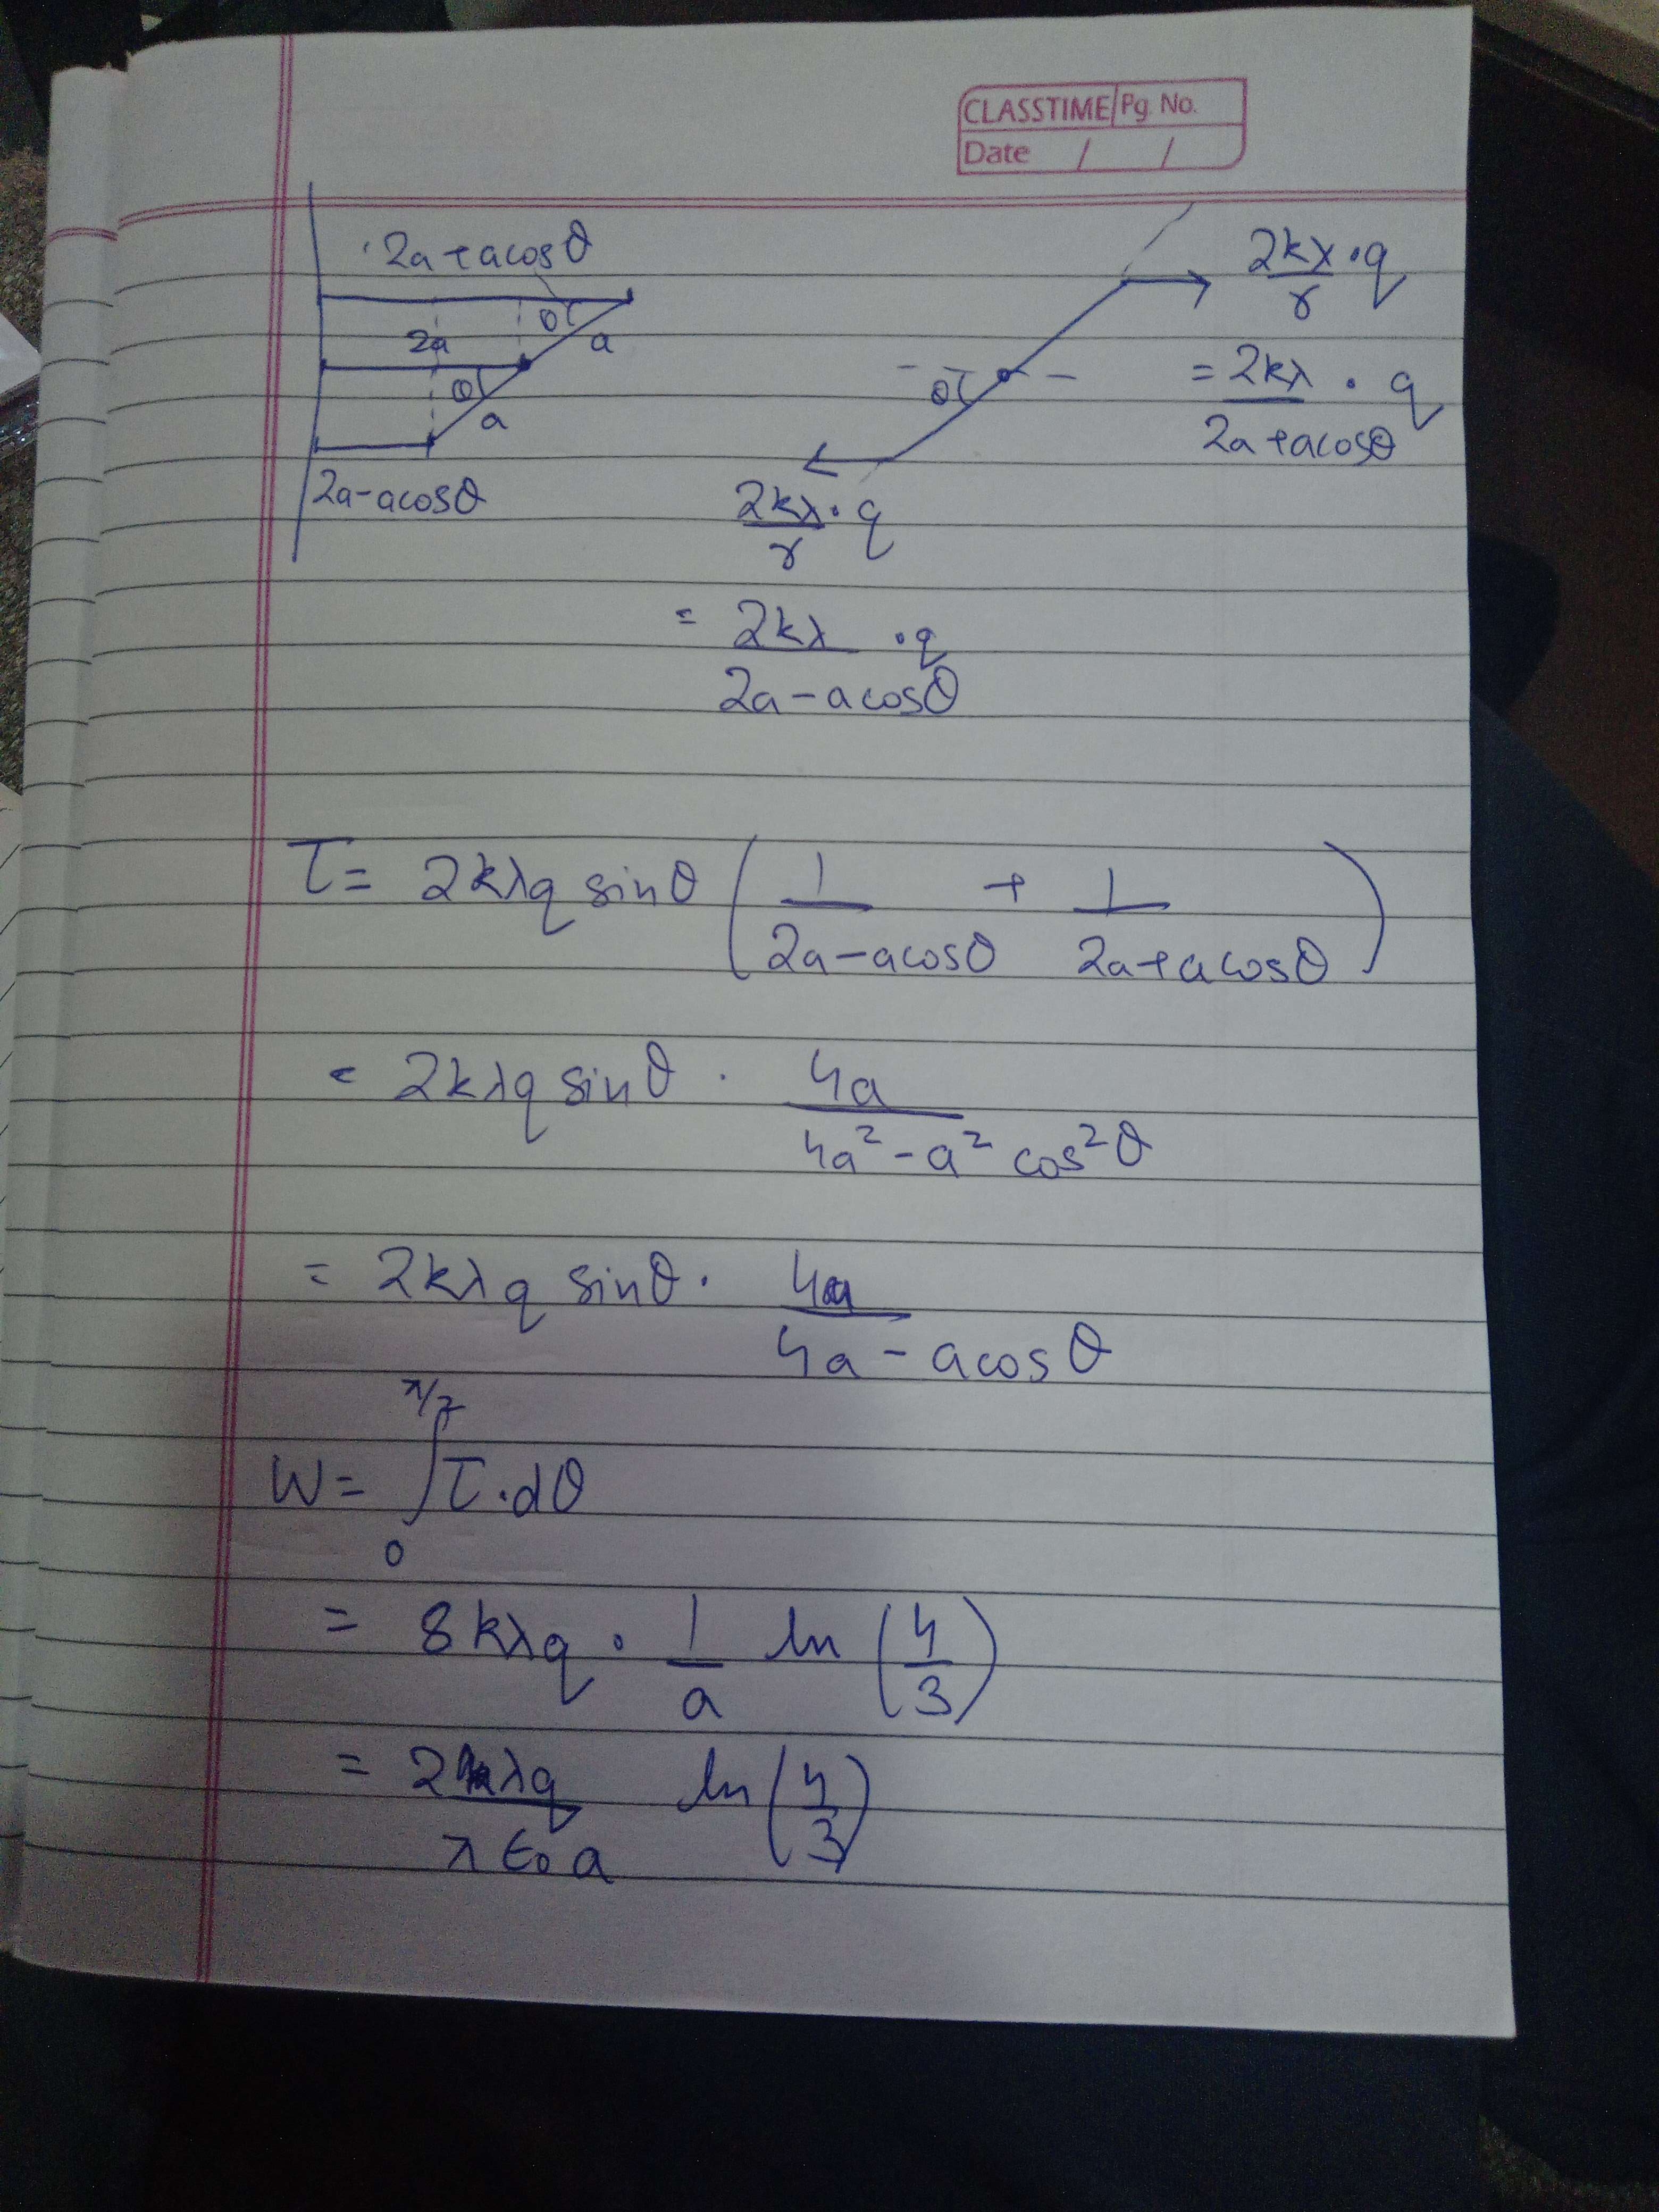 CLASSTIME Pg. No.
Date / /
2a+acosθ
θ
2a
a
θ
a
2a-acosθ
2kλ/r · q
= 2kλ/(2a+acosθ) · q
θ
2kλ/r · q
= 2kλ/(2a-acosθ) · q
τ = 2kλq sinθ (1/(2a-acosθ) + 1/(2a+acosθ))
= 2kλq sinθ · 4a/(4a²-a² cos²θ)
= 2kλq sinθ · 4a/(4a-acosθ)
W = ∫₀^(π/2) τ·dθ
= 8kλq · 1/a ln(4/3)
= 2λq/(πε₀a) ln(4/3)